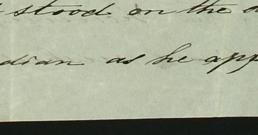 stood on the
dian as he app